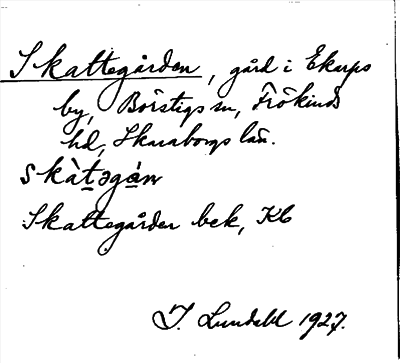 Skattegården, gård i Ekarps
by, Börstigs sn, Frökinds
hd, Skaraborgs län.
skàtəgán
Skattegården bek, Kb
I. Lundahl 1927.